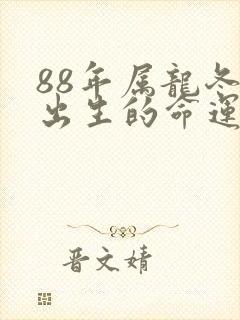 88年属龍冬
出生的命運
晋文婧